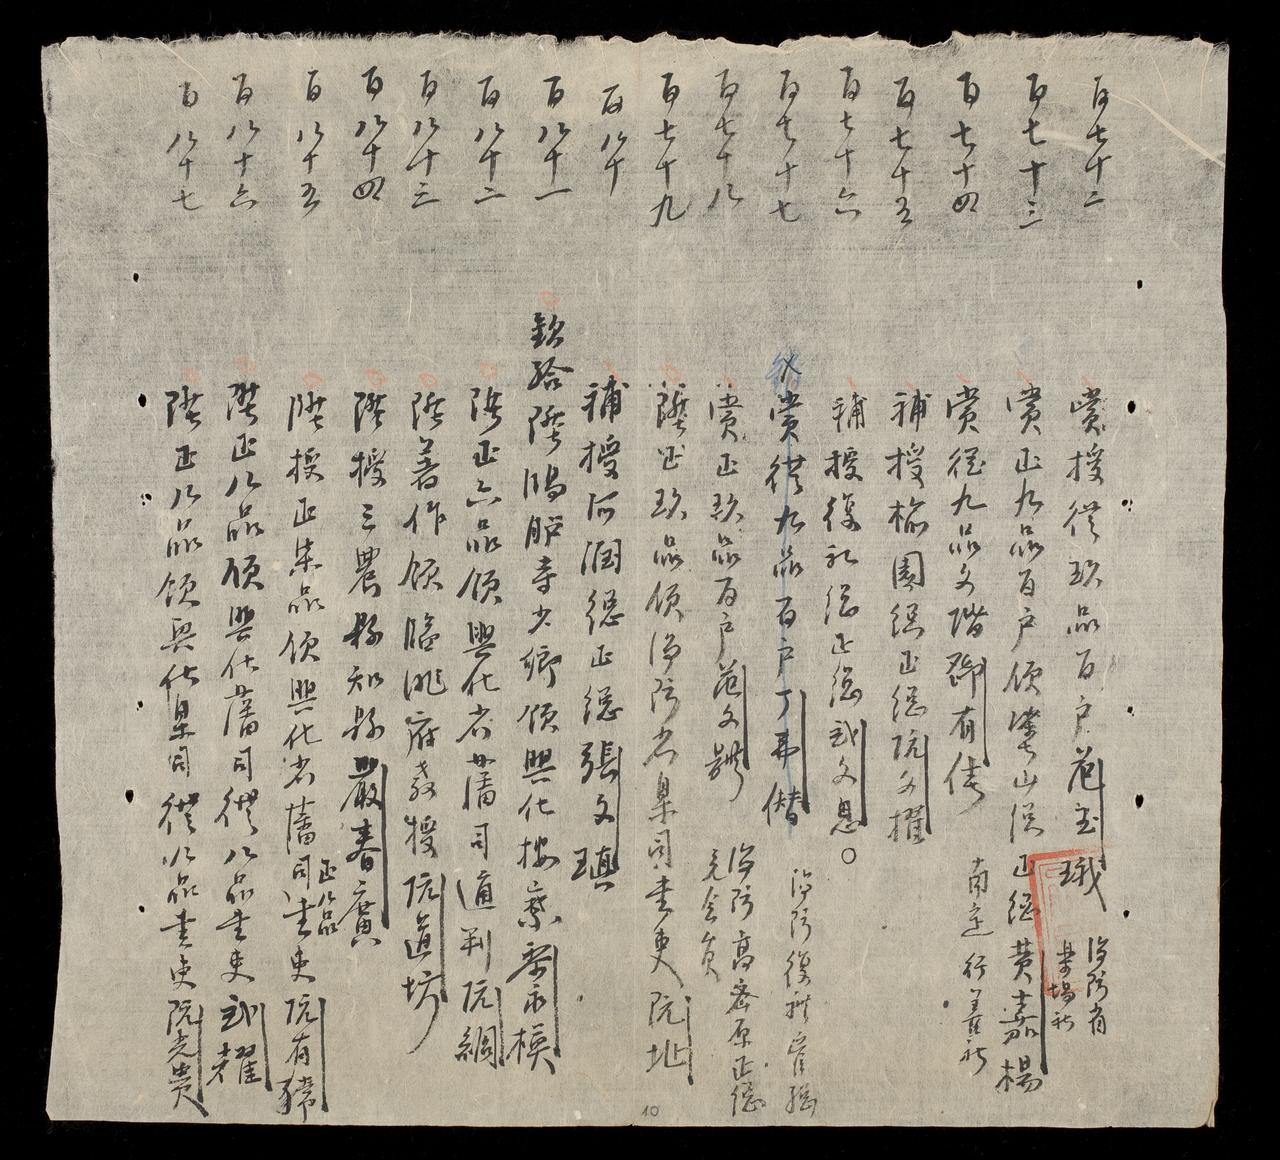 百七十二 賞授從玖品百戶范玉珴 海防省
百七十三 賞正九品百戶領 山總正總黄嘉楊
百七十四 賞從九品文階鄧有 南定行善社
百七十五 補授榆園總正總阮文擢
百七十六 補授復礼總正總武文恩
百七十七 賞從九品百戶丁 偕 海防復礼
百七十八 賞正玖品百戶范文 海防 高密原正總 會員
百七十九 陞正玖品領海防省臬司書吏阮址
百八十 補授河潤總正總張文瑱
百八十一 欽給陞鴻臚寺少卿領興化按察黎永模
百八十二 陞正六品領興化省藩司通判阮綱
百八十三 陞著作領臨洮府教授阮道坊
百八十四 陞授三農縣知縣嚴春廣
百八十五 陞授正柒品領興化省藩司正八品書吏阮有
百八十六 陞正八品領興化藩司從八品書吏武耀
百八十七 陞正八品領興化臬司從八品書吏阮光貴
10